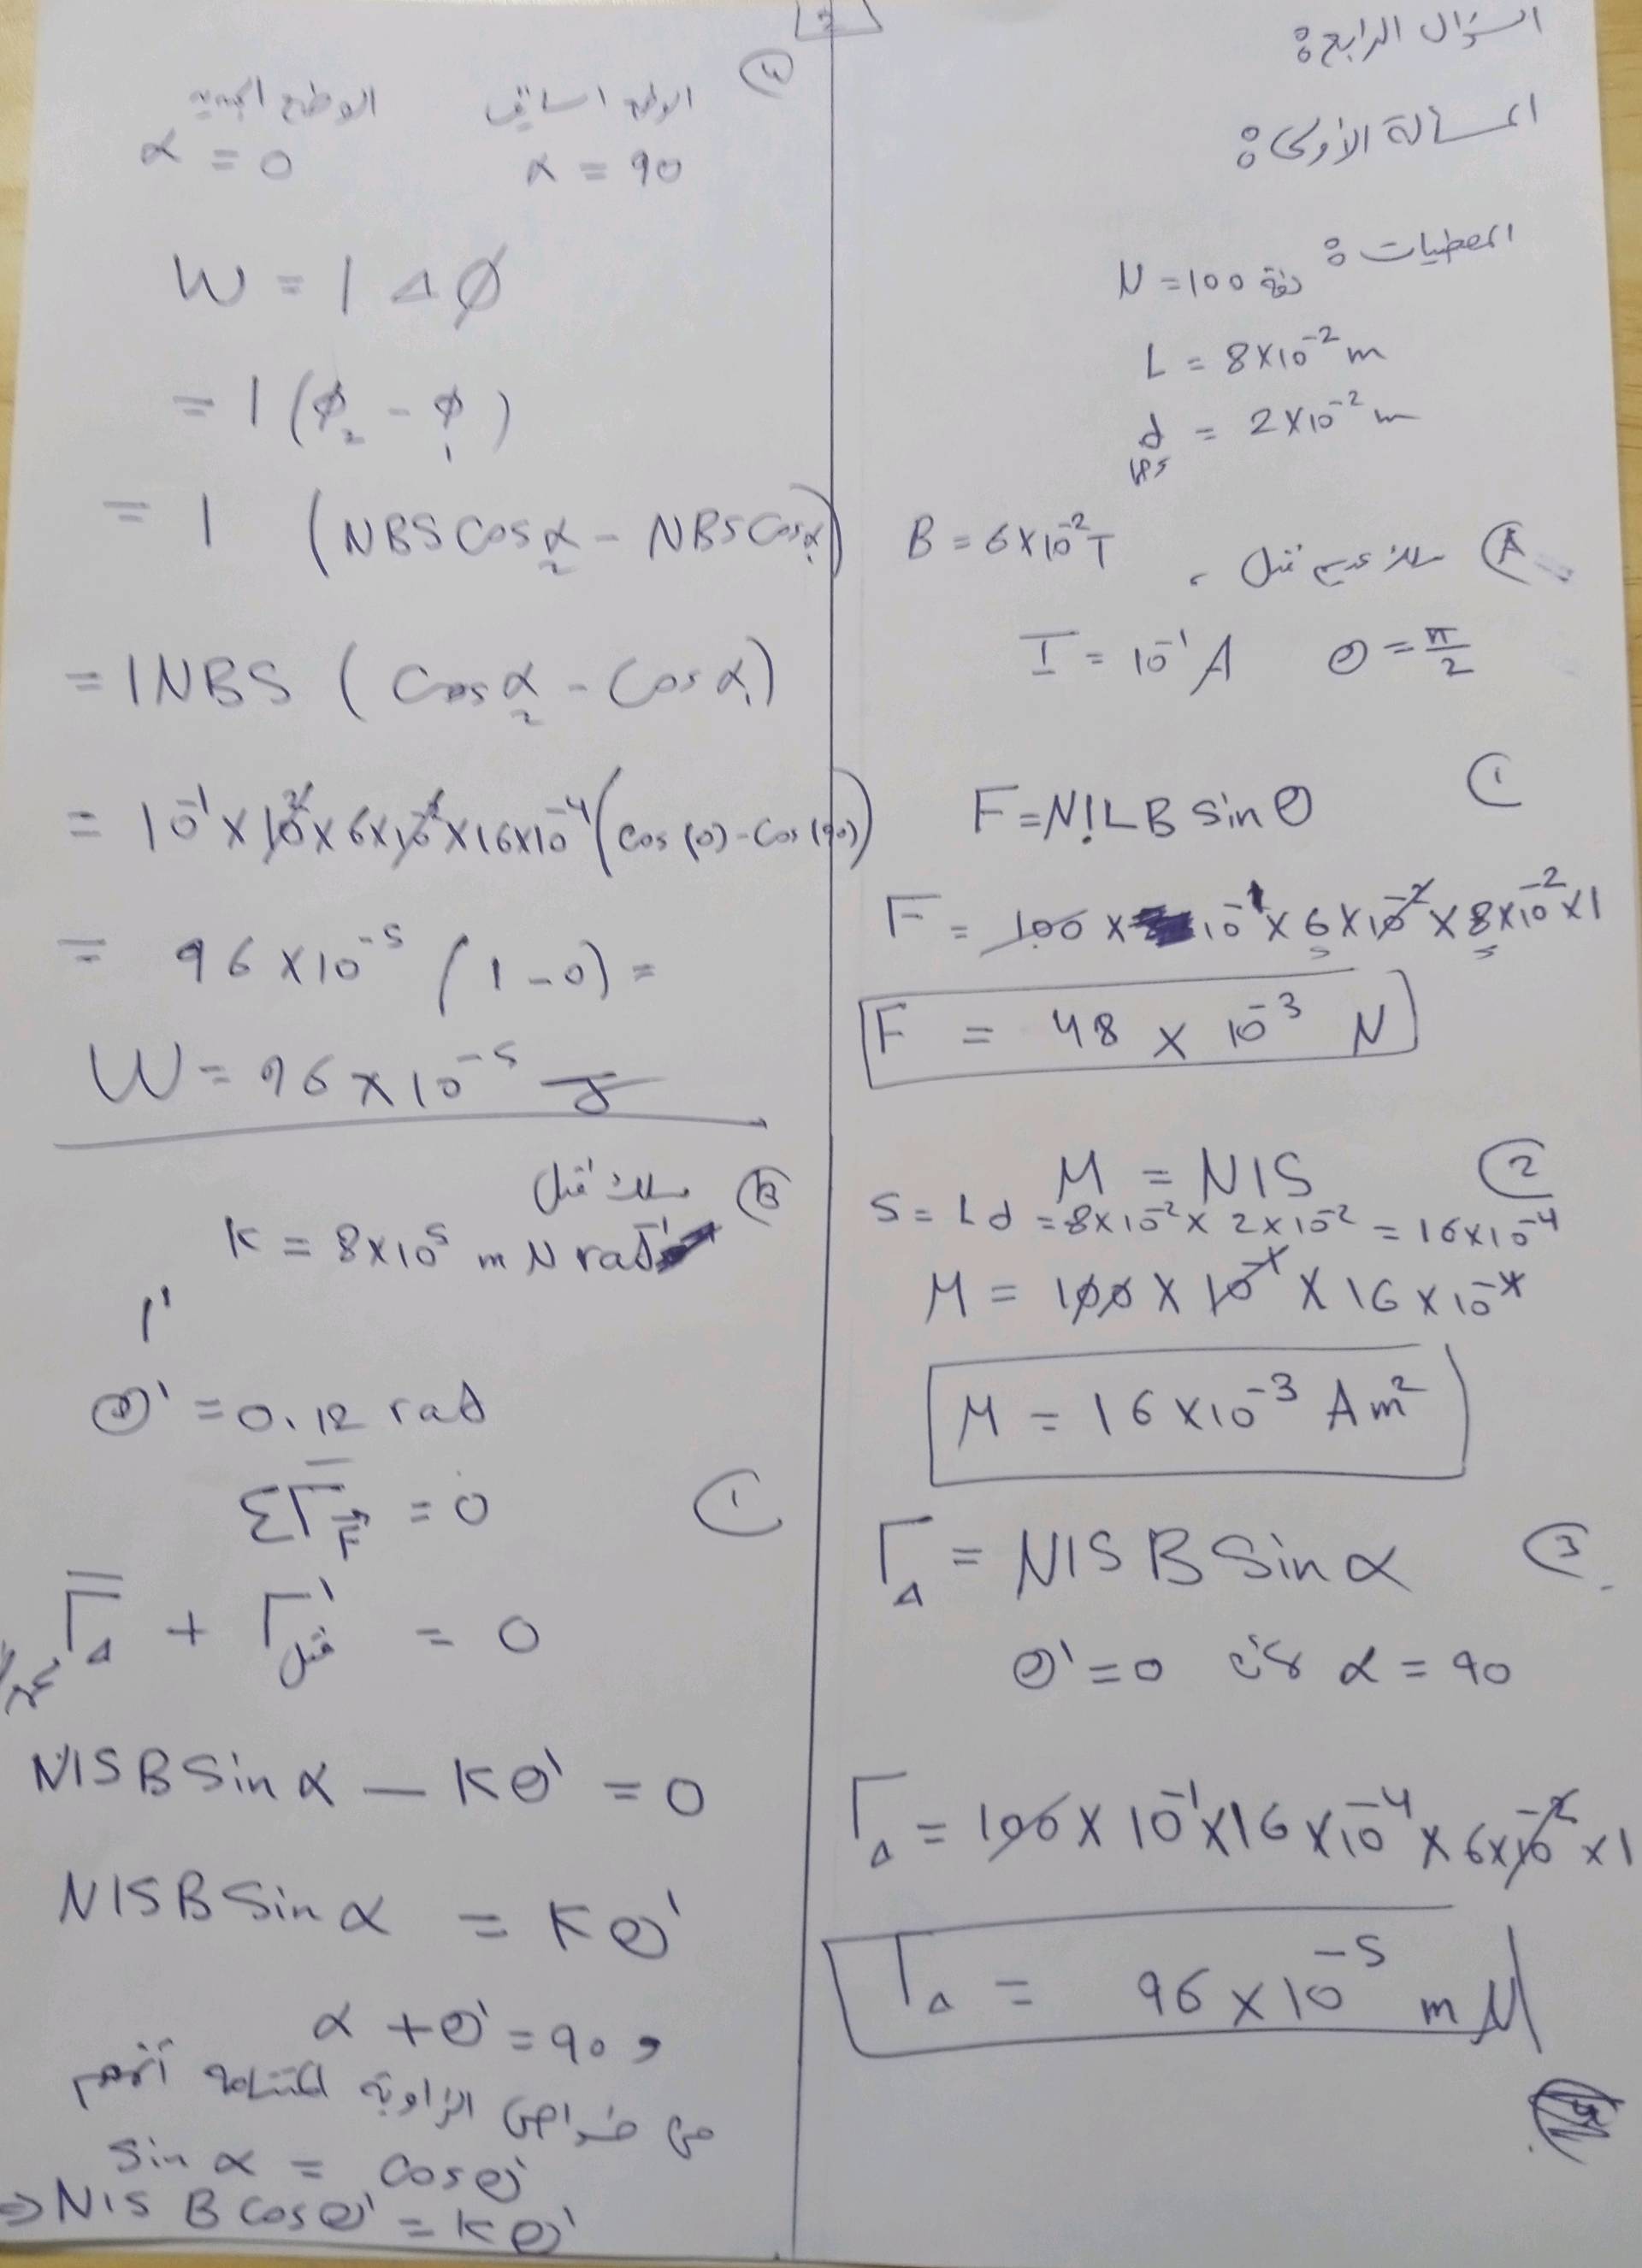 السؤال الرابع:
المسألة الأولى:
المعطيات:
N = 100 لفة
L = 8×10⁻² m
d = 2×10⁻² m
عرض
B = 6×10⁻² T
(A) سلك عديم فتل ،
I = 10⁻¹ A θ = π/2
(1
F = NILB sin θ
F = 100 × 10⁻¹ × 6×10⁻² × 8×10⁻² × 1
F = 48 × 10⁻³ N
(2
M = NIS
S = Ld = 8×10⁻² × 2×10⁻² = 16×10⁻⁴
M = 100 × 10⁻¹ × 16 × 10⁻⁴
M = 16×10⁻³ A m²
(3
Γ_Δ = NIS B Sin α
θ' = 0 كان α = 90
Γ_Δ = 100 × 10⁻¹ × 16 × 10⁻⁴ × 6×10⁻² × 1
Γ_Δ = 96 × 10⁻⁵ m N
(4)
الوضع السابق الوضع الجديد
α = 90 α = 0
W = I Δ∅
= I (∅₂ - ∅₁)
= I (NBS Cos α₂ - NBS Cos α₁)
= INBS (Cos α₂ - Cos α₁)
= 10⁻¹ × 10² × 6×10⁻² × 16×10⁻⁴ (Cos (0) - Cos (90))
= 96 × 10⁻⁵ (1 - 0) =
W = 96 × 10⁻⁵ J
(B) سلك فتل
K = 8×10⁵ m N rad⁻¹
I'
θ' = 0.12 rad
(1
ΣΓ_F = 0
Γ_Δ + Γ' فتل = 0
NISB Sin α – Kθ' = 0
NISB Sin α = Kθ'
و α + θ' = 90
من خواص الزاوية المتتامة
Sin α = Cos θ'
⇒ NIS B Cos θ' = Kθ'